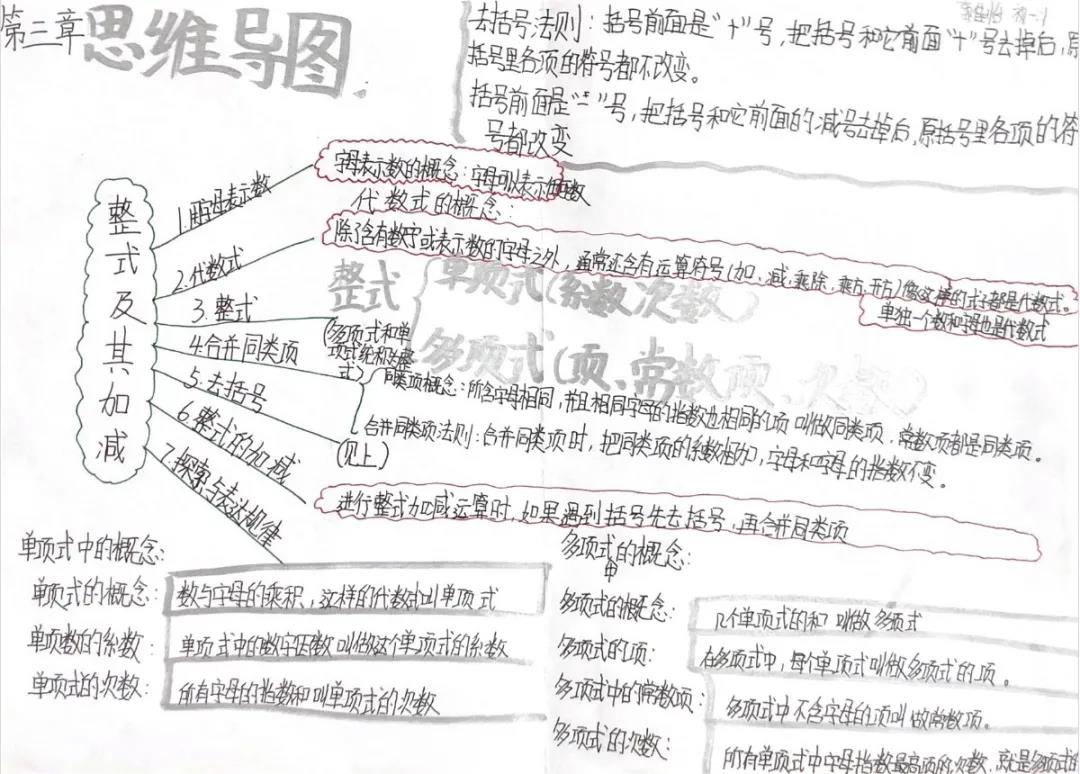 第三章思维导图
去括号法则：括号前面是"十"号，把括号和它前面"十"号去掉后，原
括号里各项的符号都不改变。
括号前面是"-"号，把括号和它前面的减号去掉后，原括号里各项的符
号都改变
整式及其加减
1.用字母表示数
字母表示数的概念：字母可以表示任何数
2.代数式
代数式的概念：
除了含有数字或表示数的字母之外，通常还含有运算符号(加、减、乘除、乘方、开方)像这样的式子都是代数式。
单独一个数和字母也是代数式
3.整式
(多项式和单
项式统称为整
式)
整式
单项式(系数次数)
多项式(项、常数项、次数)
4.合并同类项
同类项概念：所含字母相同，并且相同字母的指数也相同的项叫做同类项，常数项都是同类项。
合并同类项法则：合并同类项时，把同类项的系数相加，字母和字母的指数不变。
5.去括号
(见上)
6.整式的加减
进行整式加减运算时，如果遇到括号先去括号，再合并同类项
7.探索与表达规律
单项式中的概念：
单项式的概念：数与字母的乘积，这样的代数式叫单项式
单项数的系数：单项式中的数字因数叫做这个单项式的系数
单项式的次数：所有字母的指数和叫单项式的次数
多项式中的概念：
多项式的概念：几个单项式的和叫做多项式
多项式的项：在多项式中，每个单项式叫做多项式的项。
多项式中的常数项：多项式中不含字母的项叫做常数项。
多项式的次数：所有单项式中字母指数最高项的次数，就是多项式的